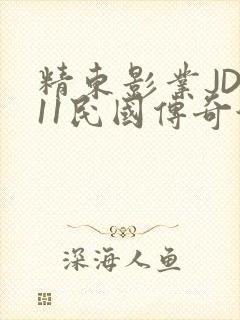 精東影業JD
11民國傳奇
深海人鱼